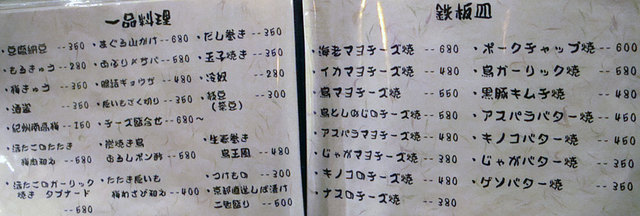 一品料理
・豆腐納豆 --350
・もろきゅう --280
・梅きゅう --350
・酒盗 --350
・紀州南高梅 --150
・活だこのたたき
梅肉和え --680
・活だこのガーリック
焼き タブナード
--680
・まぐろ山かけ --680
・あぶりメサバ --580
・眼話ギョウザ --480
・長いもざく切り --350
・チーズ盛合せ --680〜
・炭焼き鳥
おろしポン酢 --580
・たたき長いも
梅わさび和え --400
・だし巻き --350
・玉子焼き --350
・冷奴 --280
・枝豆 --300
(茶豆)
・生春巻き
鳥王風 --480
・つけもの --300
・京都直送しば漬け
二色盛り --500
鉄板皿
・海老マヨチーズ焼 --680
・イカマヨチーズ焼 --480
・鳥マヨチーズ焼 --550
・鳥としめじのチーズ焼 --580
・アスパラマヨチーズ焼 --480
・じゃがマヨチーズ焼 --380
・キノコのチーズ焼 --480
・ナスのチーズ焼 --380
・ポークチャップ焼 --600
・鳥ガーリック焼 --580
・黒豚キムチ焼 --480
・アスパラバター焼 --450
・キノコバター焼 --450
・じゃがバター焼 --350
・ゲソバター焼 --350